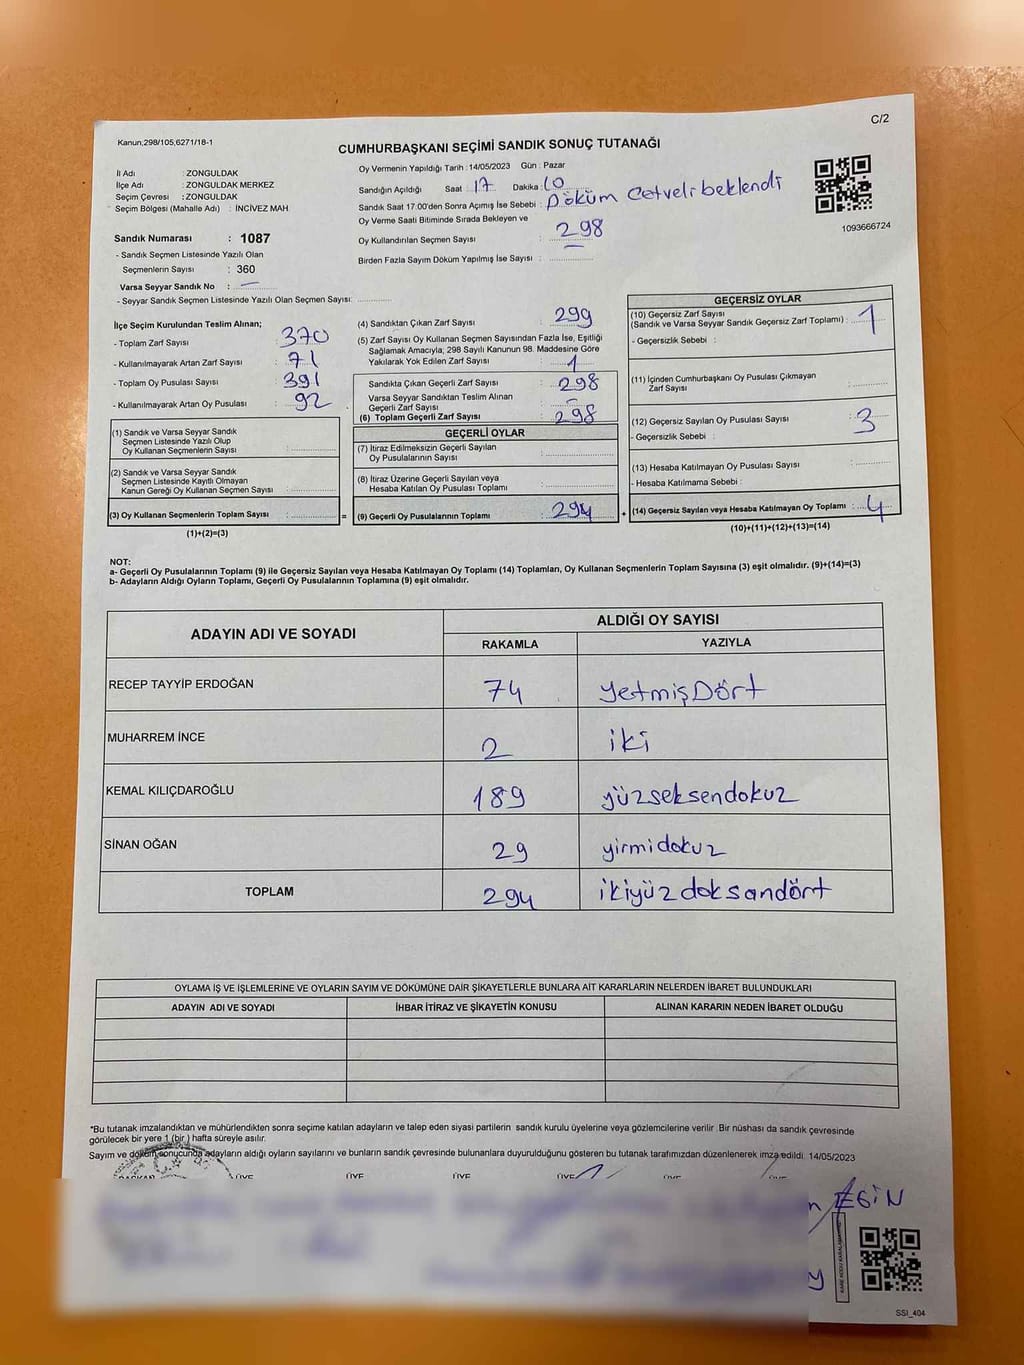 C/2
Kanun,298/105,6271/18-1
CUMHURBAŞKANI SEÇİMİ SANDIK SONUÇ TUTANAĞI
İl Adı : ZONGULDAK
İlçe Adı : ZONGULDAK MERKEZ
Seçim Çevresi : ZONGULDAK
Seçim Bölgesi (Mahalle Adı) : İNCİVEZ MAH.
Sandık Numarası : 1087
- Sandık Seçmen Listesinde Yazılı Olan
Seçmenlerin Sayısı : 360
Varsa Seyyar Sandık No : —
- Seyyar Sandık Seçmen Listesinde Yazılı Olan Seçmen Sayısı:
Oy Vermenin Yapıldığı Tarih : 14/05/2023 Gün : Pazar
Sandığın Açıldığı Saat 17 Dakika : 10
Sandık Saat 17.00'den Sonra Açımış İse Sebebi : Döküm Cetveli beklendi
Oy Verme Saati Bitiminde Sırada Bekleyen ve
Oy Kullandırılan Seçmen Sayısı : 298
Birden Fazla Sayım Döküm Yapılmış İse Sayısı :
1093666724
İlçe Seçim Kurulundan Teslim Alınan;
- Toplam Zarf Sayısı : 370
- Kullanılmayarak Artan Zarf Sayısı : 71
- Toplam Oy Pusulası Sayısı : 391
- Kullanılmayarak Artan Oy Pusulası : 92
(1) Sandık ve Varsa Seyyar Sandık
Seçmen Listesinde Yazılı Olup
Oy Kullanan Seçmenlerin Sayısı :
(2) Sandık ve Varsa Seyyar Sandık
Seçmen Listesinde Kayıtlı Olmayan
Kanun Gereği Oy Kullanan Seçmen Sayısı :
(3) Oy Kullanan Seçmenlerin Toplam Sayısı : =
(1)+(2)=(3)
(4) Sandıktan Çıkan Zarf Sayısı : 299
(5) Zarf Sayısı Oy Kullanan Seçmen Sayısından Fazla İse, Eşitliği
Sağlamak Amacıyla; 298 Sayılı Kanunun 98. Maddesine Göre
Yakılarak Yok Edilen Zarf Sayısı : 1
Sandıkta Çıkan Geçerli Zarf Sayısı : 298
Varsa Seyyar Sandıktan Teslim Alınan
Geçerli Zarf Sayısı : —
(6) Toplam Geçerli Zarf Sayısı : 298
GEÇERLİ OYLAR
(7) İtiraz Edilmeksizin Geçerli Sayılan
Oy Pusulalarının Sayısı :
(8) İtiraz Üzerine Geçerli Sayılan veya
Hesaba Katılan Oy Pusulası Toplamı :
(9) Geçerli Oy Pusulalarının Toplamı : 294 +
GEÇERSİZ OYLAR
(10) Geçersiz Zarf Sayısı
(Sandık ve Varsa Seyyar Sandık Geçersiz Zarf Toplamı) : 1
- Geçersizlik Sebebi :
(11) İçinden Cumhurbaşkanı Oy Pusulası Çıkmayan
Zarf Sayısı :
(12) Geçersiz Sayılan Oy Pusulası Sayısı : 3
- Geçersizlik Sebebi :
(13) Hesaba Katılmayan Oy Pusulası Sayısı :
- Hesaba Katılmama Sebebi :
(14) Geçersiz Sayılan veya Hesaba Katılmayan Oy Toplamı : 4
(10)+(11)+(12)+(13)=(14)
NOT:
a- Geçerli Oy Pusulalarının Toplamı (9) ile Geçersiz Sayılan veya Hesaba Katılmayan Oy Toplamı (14) Toplamları, Oy Kullanan Seçmenlerin Toplam Sayısına (3) eşit olmalıdır. (9)+(14)=(3)
b- Adayların Aldığı Oyların Toplamı, Geçerli Oy Pusulalarının Toplamına (9) eşit olmalıdır.
ADAYIN ADI VE SOYADI
ALDIĞI OY SAYISI
RAKAMLA YAZIYLA
RECEP TAYYİP ERDOĞAN 74 YetmişDört
MUHARREM İNCE 2 iki
KEMAL KILIÇDAROĞLU 189 yüzseksendokuz
SİNAN OĞAN 29 yirmidokuz
TOPLAM 294 ikiyüzdoksandört
OYLAMA İŞ VE İŞLEMLERİNE VE OYLARIN SAYIM VE DÖKÜMÜNE DAİR ŞİKAYETLERLE BUNLARA AİT KARARLARIN NELERDEN İBARET BULUNDUKLARI
ADAYIN ADI VE SOYADI İHBAR İTİRAZ VE ŞİKAYETİN KONUSU ALINAN KARARIN NEDEN İBARET OLDUĞU
*Bu tutanak imzalandıktan ve mühürlendikten sonra seçime katılan adayların ve talep eden siyasi partilerin sandık kurulu üyelerine veya gözlemcilerine verilir .Bir nüshası da sandık çevresinde
görülecek bir yere 1 (bir ) hafta süreyle asılır.
Sayım ve döküm sonucunda adayların aldığı oyların sayılarını ve bunların sandık çevresinde bulunanlara duyurulduğunu gösteren bu tutanak tarafımızdan düzenlenerek imza edildi. 14/05/2023
BAŞKAN ÜYE ÜYE ÜYE ÜYE ÜYE ÜYE
EGİN
SSİ_404